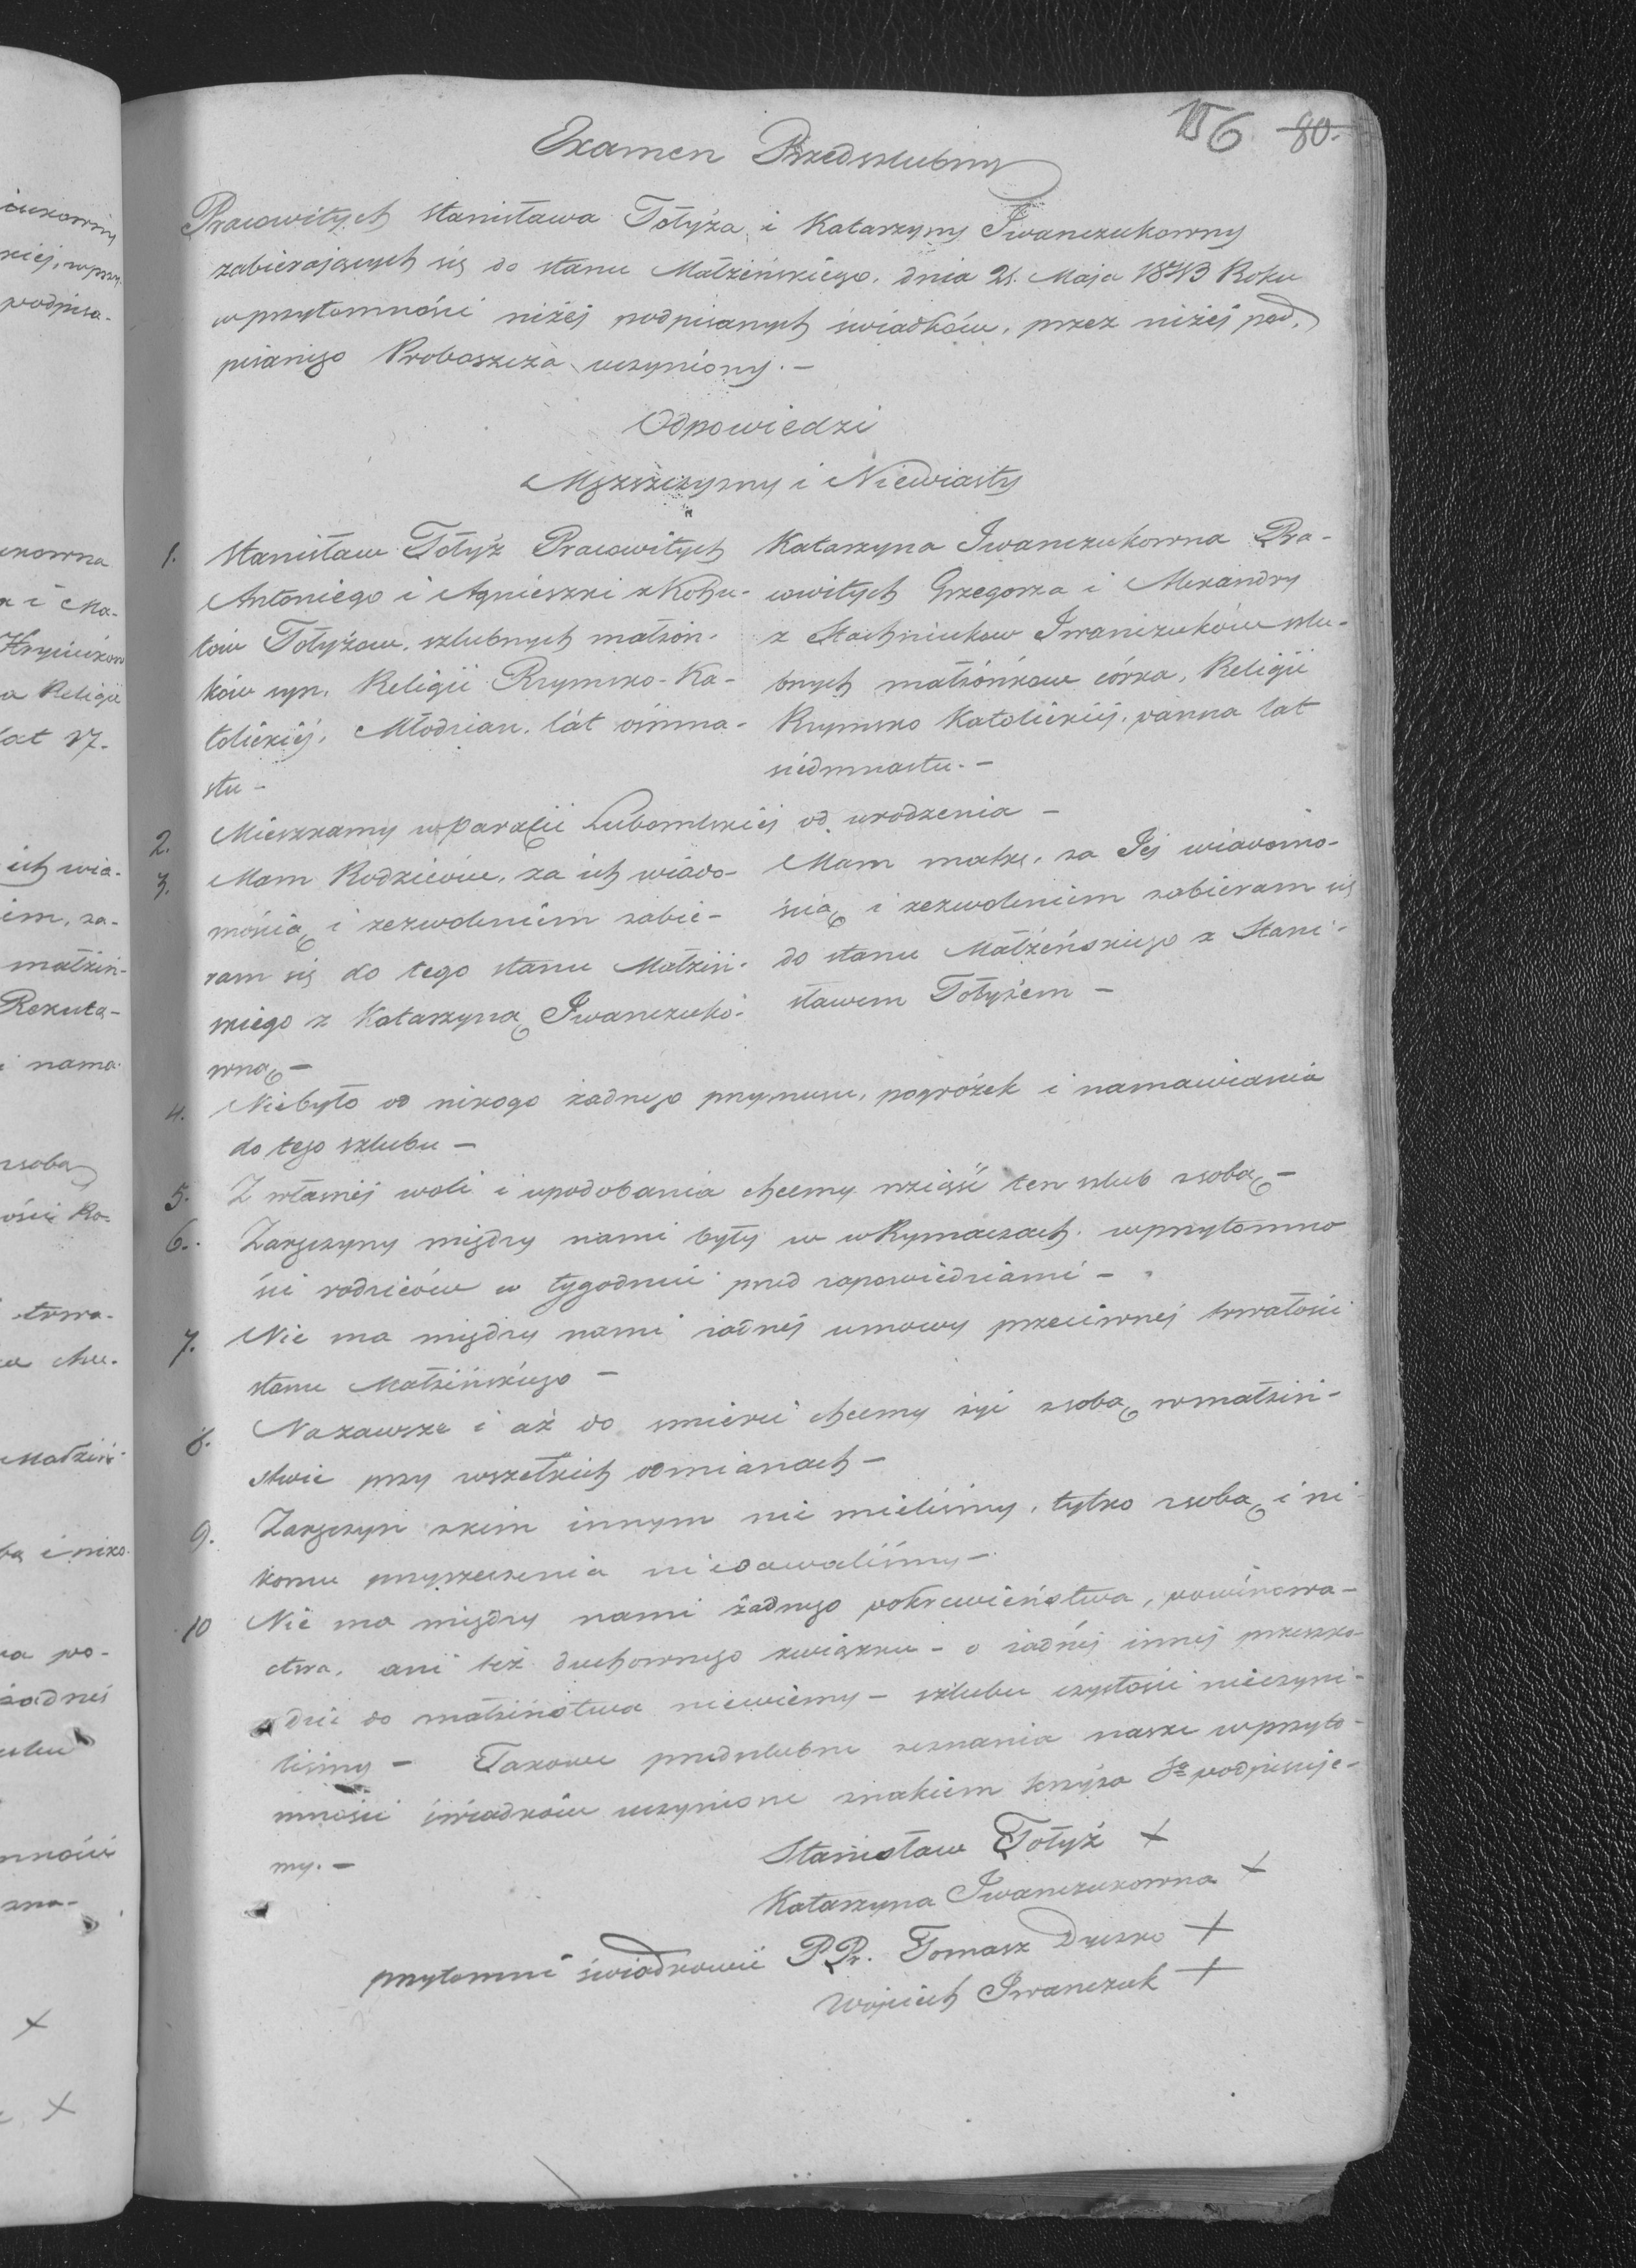 156 80.
Examen Przedszlubny
Pracowitych Stanisława Tołyża i Katarzyny Iwanczukowny
zabierających się do stanu Małżeńskiego, dnia 21. Maja 1843 Roku
w przytomności niżéj podpisanych świadków, przez niżéj pod,
pisanego Proboszcza uczyniony. –
Odpowiedzi
Męszczyzny i Niewiasty
1. Stanisław Tołyż Pracowitych
Antoniego i Agnieszki z Kohu-
tów Tołyżow, szlubnych małżon-
ków syn, Religii Rzymsko-Ka-
tolickiéj, Młodzian, lat ośmna-
stu –
Katarzyna Iwanczukowna Pra-
cowitych Grzegorza i Alexandry
z Stachniukow Iwanczuków szlu-
bnych małżónkow córka, Religii
Rzymsko Katolickiéj, panna lat
siedmnastu. –
2. Mieszkamy w parafii Lubomlskiéj od urodzenia –
3. Mam Rodziców, za ich wiado-
mością i zezwoleniem zabie-
ram się do tego stanu Małżeń-
skiego z Katarzyną Iwanczuko-
wną –
Mam matkę, za Jéj wiadomo-
ścią i zezwoleniem zabieram się
do stanu Małżeńskiego z Stani-
sławem Tołyżem –
4. Niebyło od nikogo żadnego przymusu, pogróżek i namawiania
do tego szlubu –
5. Z własnéj woli i upodobania chcemy wziąść ten szlub z sobą –
6. Zaręczyny między nami były w w Rymaczach w przytomno
ści rodziców w tygodniu przed zapowiedziami –
7. Nie ma między nami żadnéj umowy przeciwnéj trwałości
stanu Małżeńskiego –
8. Nazawsze i aż do smierci chcemy żyć z sobą w małżeń-
stwie przy wszelkich odmianach –
9. Zaręczyn z kim innym nie mieliśmy, tylko z sobą i ni-
komu przyrzeczenia niedawaliśmy –
10 Nie ma między nami żadnego pokrewieństwa, powinowa-
ctwa, ani też duchownego związku – o żadnéj innéj przeszko-
dzie do małżeństwa niewiemy – szlubu czystości nieczyni-
liśmy – Takowe przedszlubne zeznania nasze w przyto-
mności świadków uczynione znakiem krzyża Sgo podpisuje-
my. –
Stanisław Tołyż +
Katarzyna Iwanczukowna +
przytomni świadkowie P Pr. Tomasz Dyszko +
Wojciech Iwanczuk +